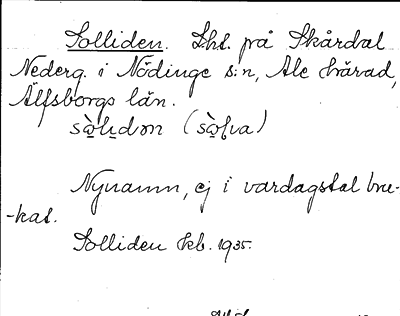 Solliden. Lht. på Skårdal
Nederg. i Nödinge s:n, Ale härad,
Älfsborgs län.
Nynamn, ej i vardagstal bru-
-kat.
Solliden Ekb. 1935.